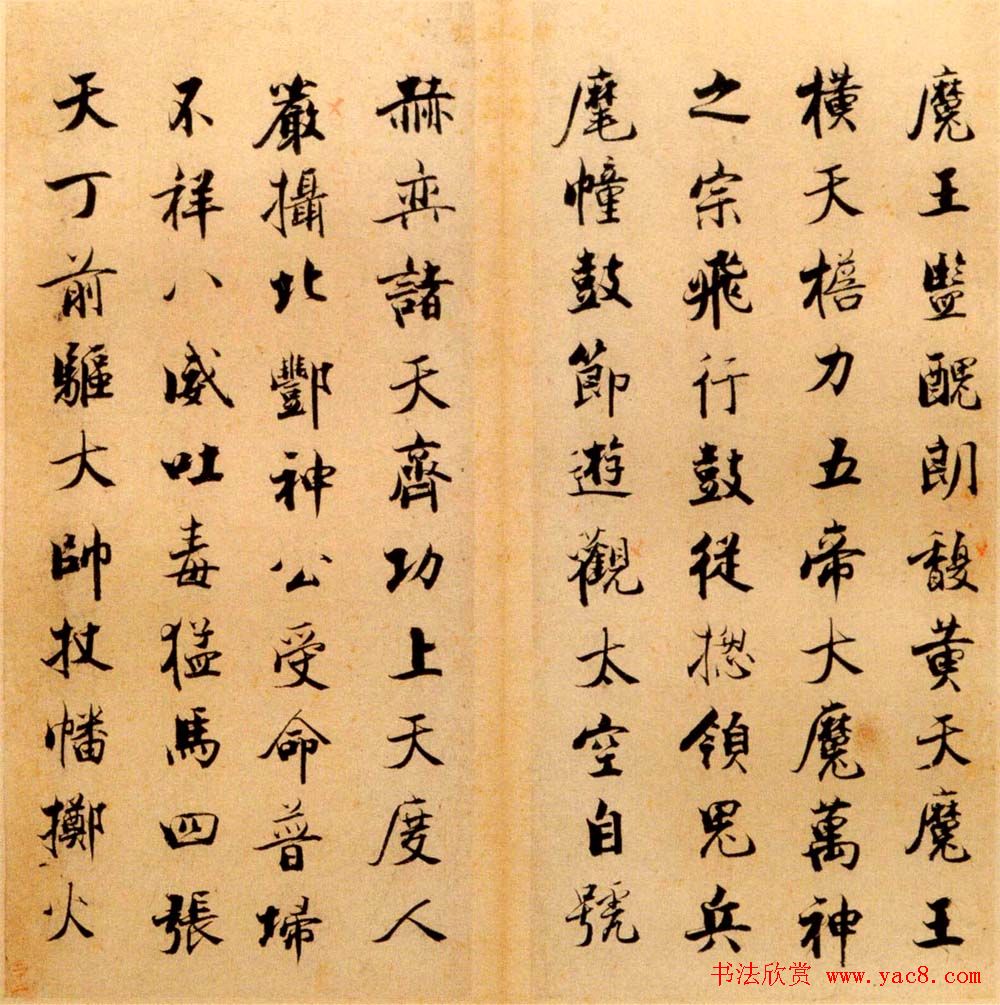 魔王監醜朗馥黄天魔王
横天檐力五帝大魔萬神
之宗飛行鼓從揔領鬼兵
麾幢鼓節遊觀太空自號
赫奕諸天齊功上天度人
嚴攝北酆神公受命普掃
不祥八威吐毒猛馬四張
天丁前驅大帥杖幡擲火
书法欣赏 www.yac8.com